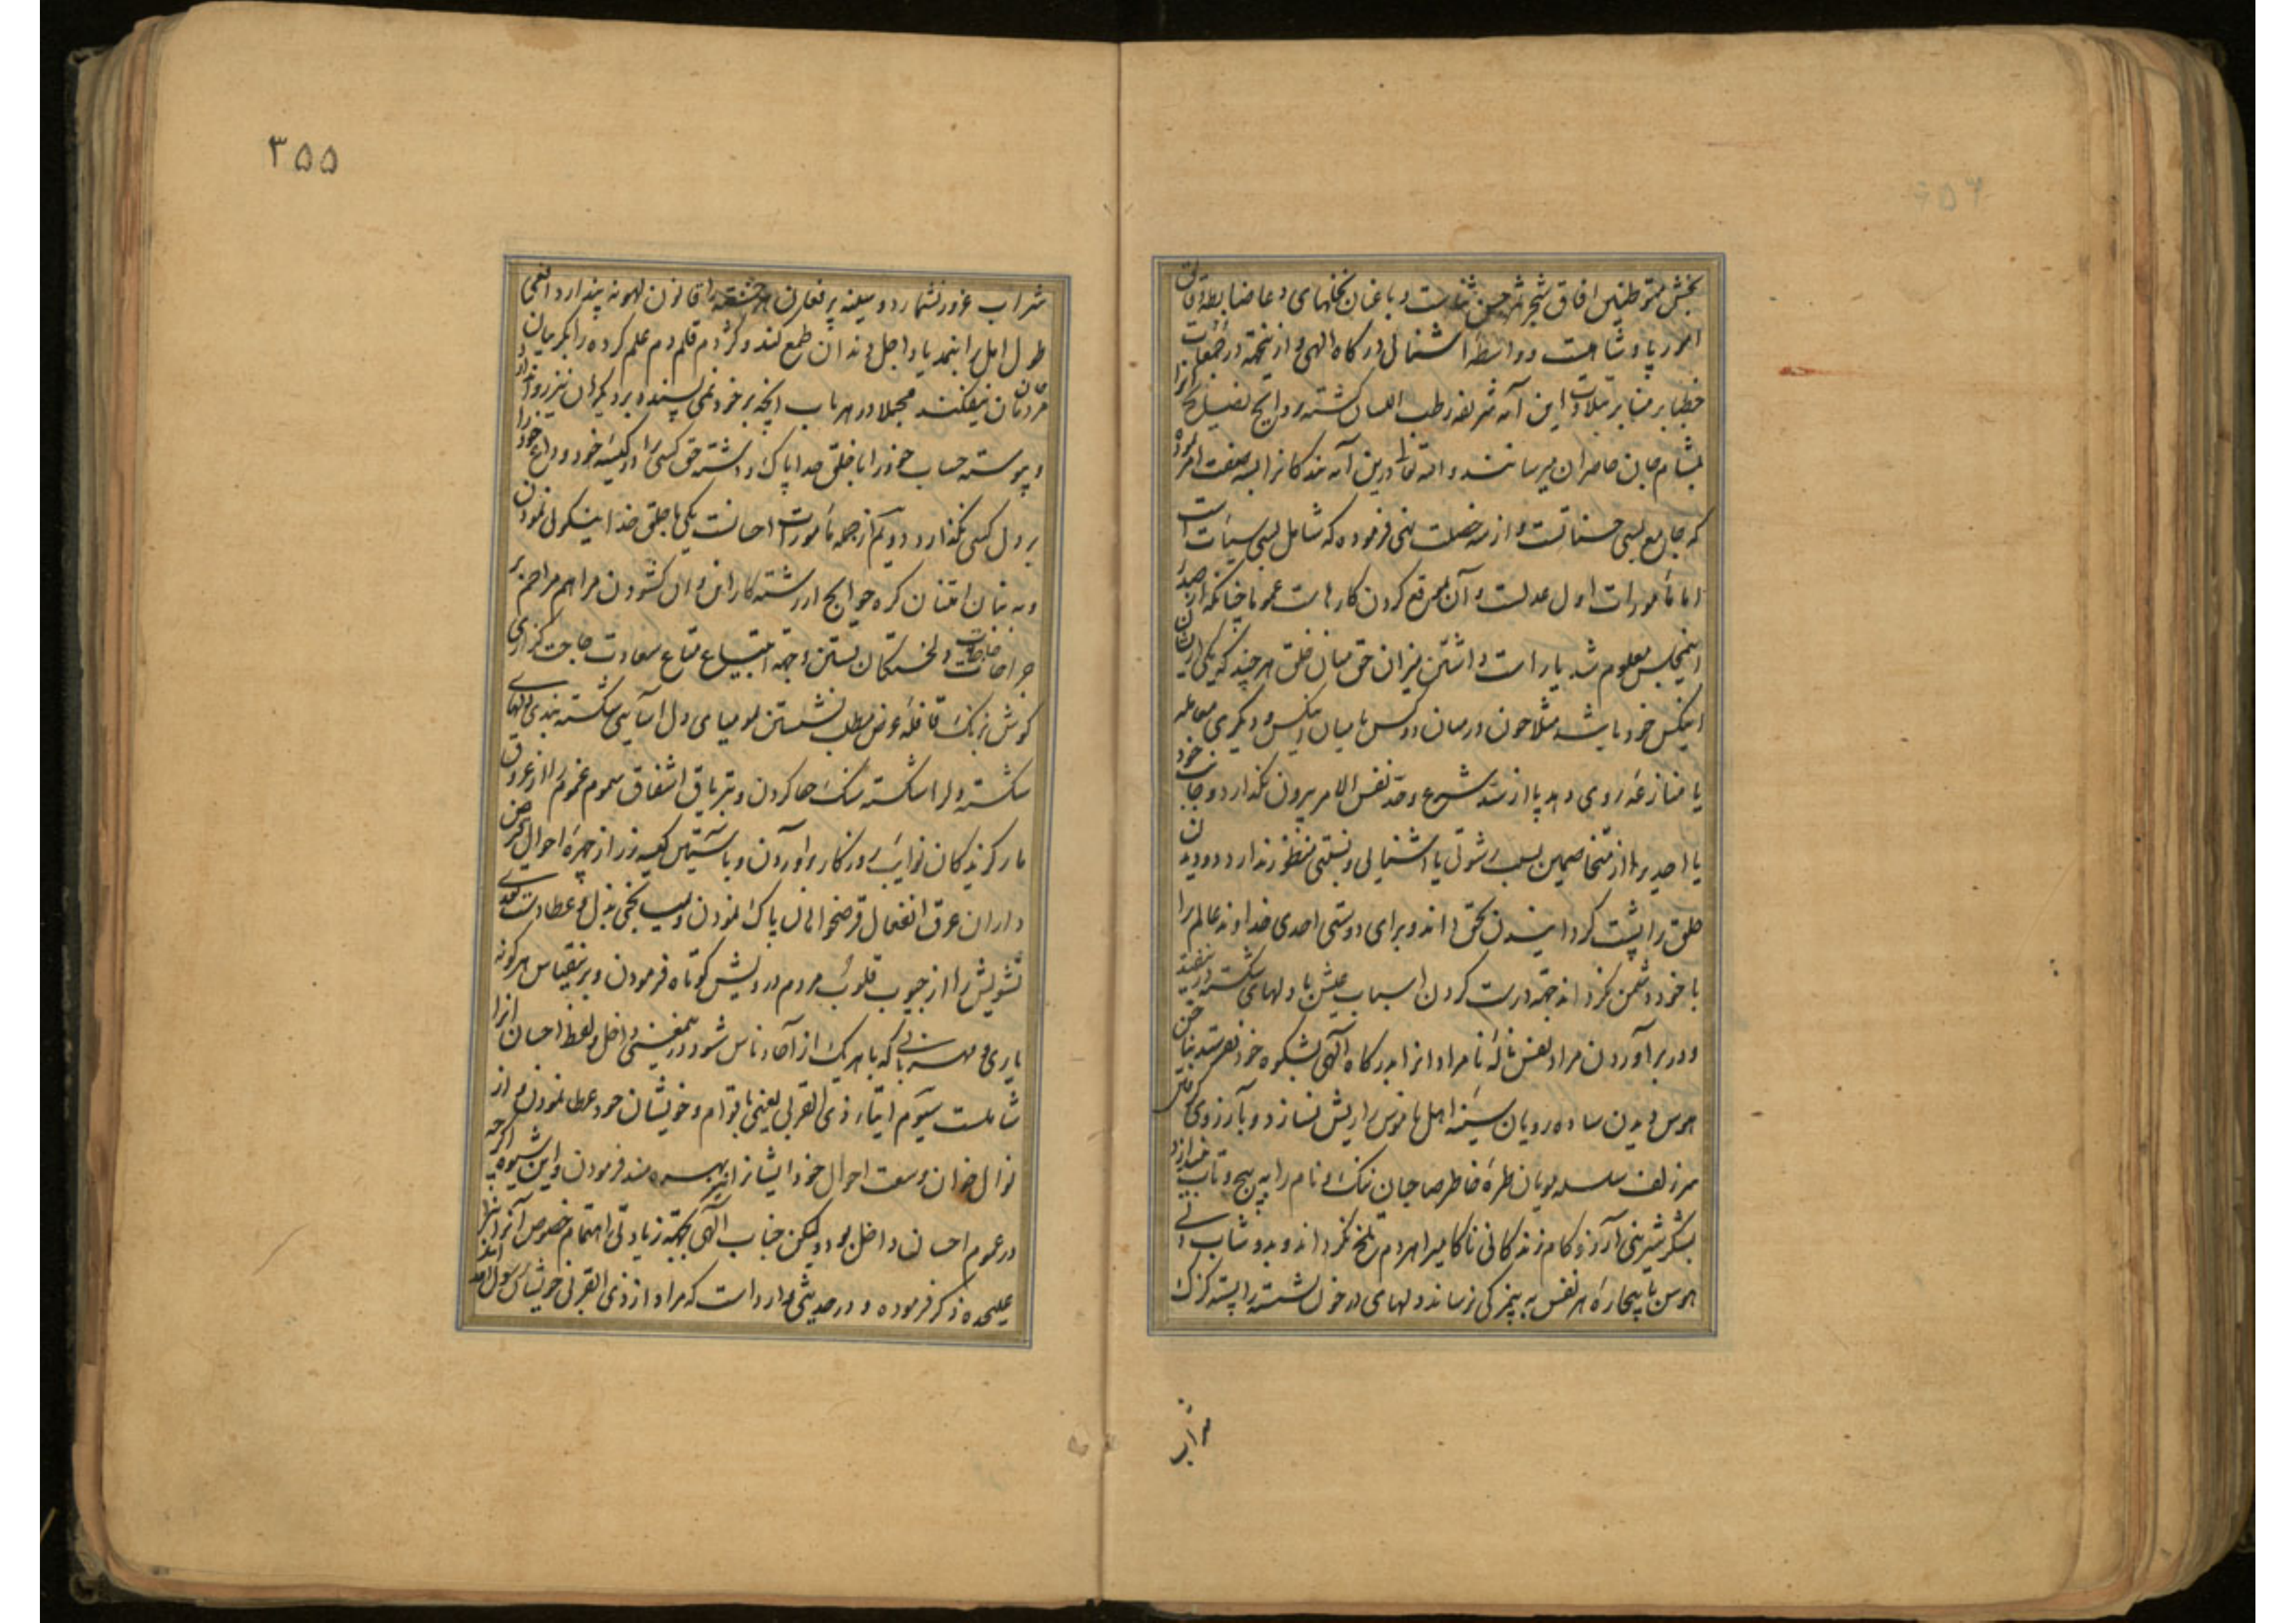 بخش متوطنین افاق شجر ثمر حسن ثناست و باغبان نخلهای دعا ضابطه وثایق
امور پادشاهیست و واسطهٔ آشنائی درگاه الهی و از ینجهة در جمعات
خطبا بر منابر بتلاوت این آیه شریفه رطب اللسان گشته روایح نصیحت انرا
بمشام جان حاضران میرسانند و الله تعالی درین آیه بندگانرا بسه صفت امر نموده
که جامع بسی حسناتست و از سه خصلت نهی فرموده که شامل بسی سیئات است
اما مأمورات اول عدلست و آن بموقع کردن کارهاست عموما چنانکه از صدر
اینمجلس معلوم شد یا راست داشتن میزان حق میان خلق هرچند که یکی از ایشان
اینکس خود باشد مثلا چون درمیان دو کس یا میان اینکس و دیگری معامله
یا منازعهٔ روی دهد پا از سد شرع و حد نفس الامر بیرون نگذارد و جانب خود
یا احدیرا از متخاصمین بسبب رشوتی یا اشنایی و نسبتی منظور ندارد و دو دیدن
خلق را پشت گردانیدن بحق داند و برای دوستی احدی خداوند عالم را
با خود دشمن نگرداند جهة درست کردن اسباب عیش با دلهای شکسته در نیفتد
و در برآوردن مراد نفس نالهٔ نامراد انرا بدرگاه الهی بشکوه خود نفرستد بناخن
هوس دیدن ساده رویان سینهٔ اهل ناموس را ریش نسازد و بآرزوی
سر زلف سلسله مویان طرهٔ خاطر صاحبان ننگ و نام را به پیچ و تاب نیندازد
بشکر شیرینی آرزو کام زندگانی ناکامیرا مردم تلخ نگرداند و بدوشاب
هوس ناپیچارهٔ هر نفس به پنیرکی نرساند دلهای در خون نشسته را پسته گزک
شراب
۳۵۵
شراب غرور نشمارد و سینه پر فغان هر خسته را قانون لهو نه پندارد افعی
طول امل را بنهد یاد اجل دندان طمع کند و کژدم قلم دم علم کرده را بگریبان
مردمان نیفکند مجملا در هر باب انچه بر خود نمی پسندد بر دیگران نیز روا ندارد
و پیوسته حساب خود را با خلق خدا پاک داشته حق کسی را در کیسهٔ خود و داغ خود را
بر دل کسی نگذارد دویم از جمله مأمورات احسانست یکی با خلق خدا نیکوئی نمودن
و به بنان امتنان گره حوایج از رشته کار این و ان گشودن مراهم مراحم بر
جراحات دلخستگان بستن و جهة ابتیاع متاع سعادت حاجت گزاری
گوش بر بانگ قافلهٔ عرض مطلب نشستن مومیای دل اسائی شکسته بندی دلهای
شکسته دلرا شکسته سنگ جفا کردن و بتریاق اشفاق سموم غموم را از عروق
مار گزیدگان نوایب روزگار واوردن و باستین کیسه زر از چهرهٔ احوال قرض
داران عرق انفعال قرضخواهان پاک نمودن و بسبب بخشی بذل و عطا دست تعدی
تشویش را از جیوب قلوب مردم درویش کوتاه فرمودن و برینقیاس هر گونه
یاری و مهربانی که با هر یک از آحاد ناس شود در ینمعنی داخل و لفظ احسان انرا
شاملست سیوم ایتاء ذی القربی یعنی باقوام و خویشان خود عطا نمودن و از
نوال خوان وسعت احوال خود ایشانرا نیز بهره مند فرمودن و این شیوه اگرچه
در عموم احسان داخل بود و لیکن جناب الهی بجهة زیادتی اهتمام خصوص آنرا نیز
علیحده ذکر فرموده و در حدیثی وارد است که مراد از ذی القربی خویشان رسول الله